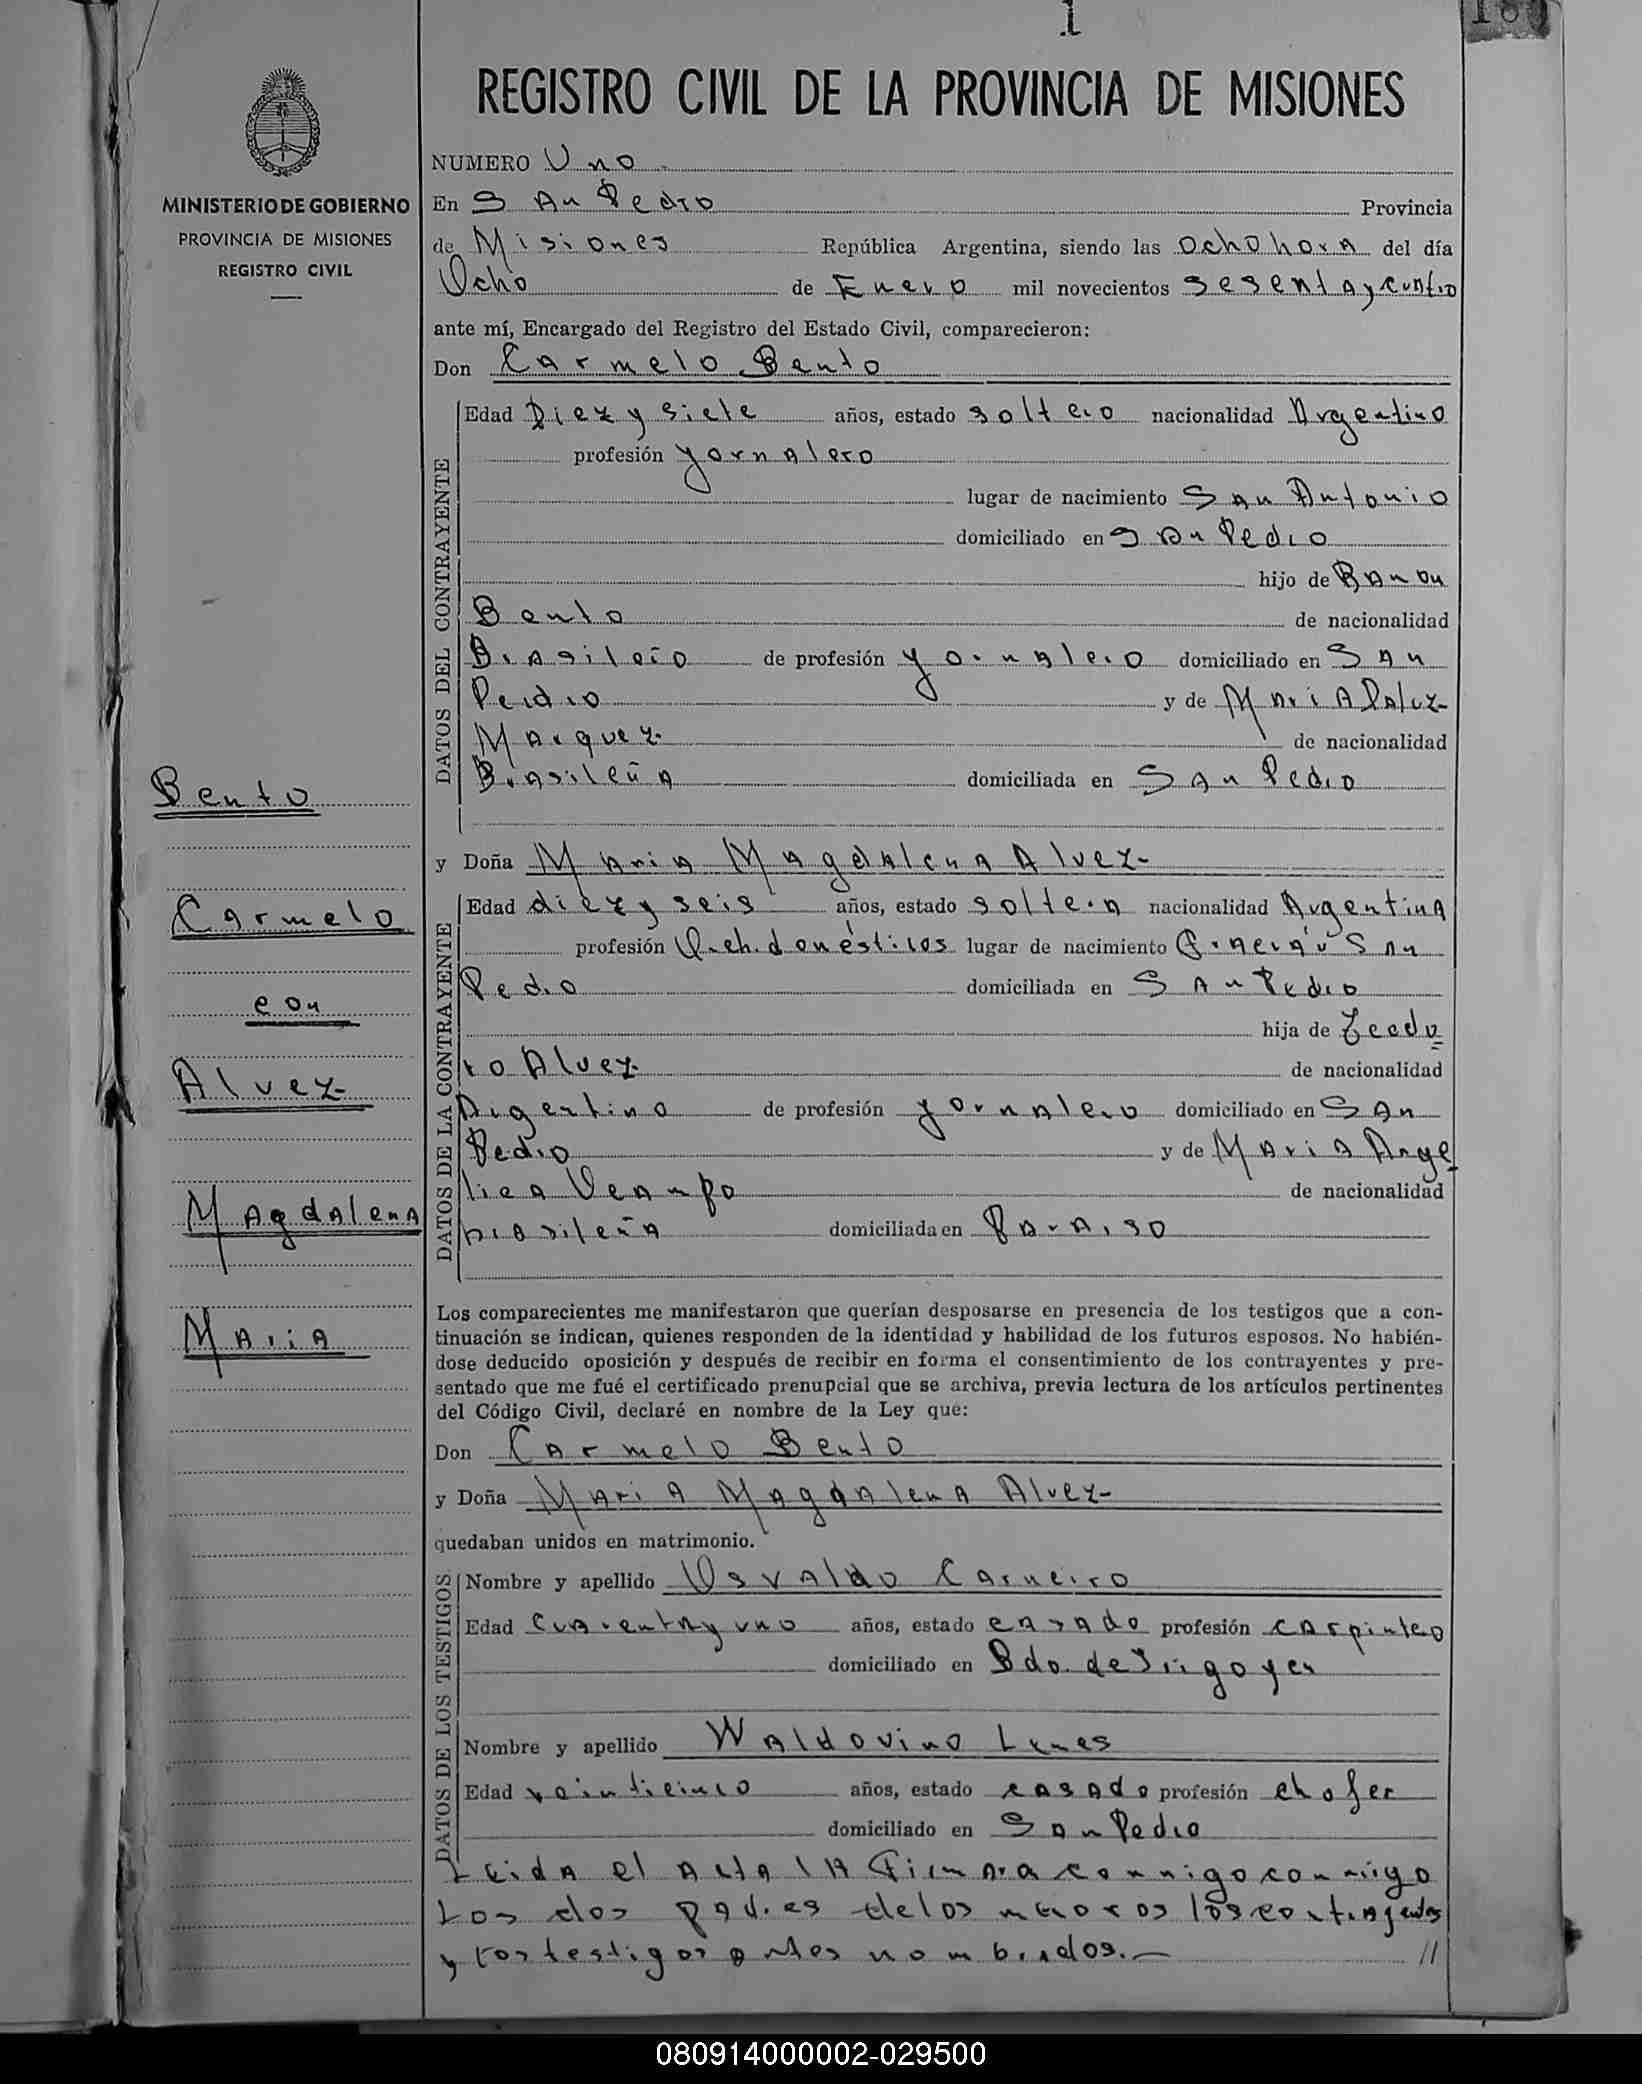 1
REGISTRO CIVIL DE LA PROVINCIA DE MISIONES
MINISTERIO DE GOBIERNO
PROVINCIA DE MISIONES
REGISTRO CIVIL
NUMERO Uno
En San Pedro Provincia
de Misiones República Argentina, siendo las ocho hora del día
Ocho de Enero mil novecientos sesenta y cuatro
ante mí, Encargado del Registro del Estado Civil, comparecieron:
Don Carmelo Bento
DATOS DEL CONTRAYENTE
Edad Diez y siete años, estado soltero nacionalidad Argentino
profesión yornalero
lugar de nacimiento San Antonio
domiciliado en San Pedro
hijo de
Bento de nacionalidad
Brasileño de profesión yornalero domiciliado en San
Pedro y de Maria
Marquez de nacionalidad
Brasileña domiciliada en San Pedro
y Doña Maria Magdalena Alvez
DATOS DE LA CONTRAYENTE
Edad diez y seis años, estado soltera nacionalidad Argentina
profesión Q.eh. domésticos lugar de nacimiento San
Pedro domiciliada en San Pedro
hija de Teodo
ro Alvez de nacionalidad
Argentino de profesión yornalero domiciliado en San
Pedro y de Maria Ange
lica Ocampo de nacionalidad
brasileña domiciliada en Paraiso
Los comparecientes me manifestaron que querían desposarse en presencia de los testigos que a con-
tinuación se indican, quienes responden de la identidad y habilidad de los futuros esposos. No habién-
dose deducido oposición y después de recibir en forma el consentimiento de los contrayentes y pre-
sentado que me fué el certificado prenupcial que se archiva, previa lectura de los artículos pertinentes
del Código Civil, declaré en nombre de la Ley que:
Don Carmelo Bento
y Doña Maria Magdalena Alvez
quedaban unidos en matrimonio.
DATOS DE LOS TESTIGOS
Nombre y apellido Osvaldo Carneiro
Edad Cuarenta y uno años, estado casado profesión carpintero
domiciliado en Bdo. de Irigoyen
Nombre y apellido Waldovino Lemes
Edad veinticinco años, estado casado profesión chofer
domiciliado en San Pedro
Leida el acta la firmara conmigo conmigo
Los dos padres de los menores los contrayentes
y los testigos antes nombrados.— //
Bento
Carmelo
con
Alvez
Magdalena
Maria
080914000002-029500